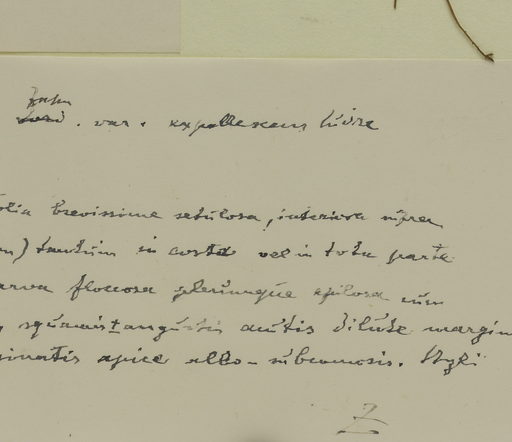 Zahn
. var. expallescens lúsus
olia brevissime setulosa, interiora supra
m) tantum in costa vel in tota parte
arva floccosa plerumque epilosa cum
squamis ± angustis acutis dilute margin
inatis apice albo-subcomosis. Styli
Z